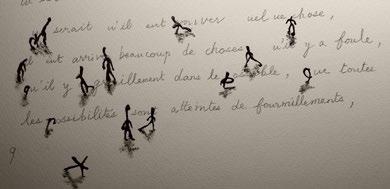 serait u'il eut ouver uel ue chose,
beaucoup de choses u'il y a foule,
u'il y illement dans le ssible, ue toutes
les possibilités son atteintes de fourmillements,